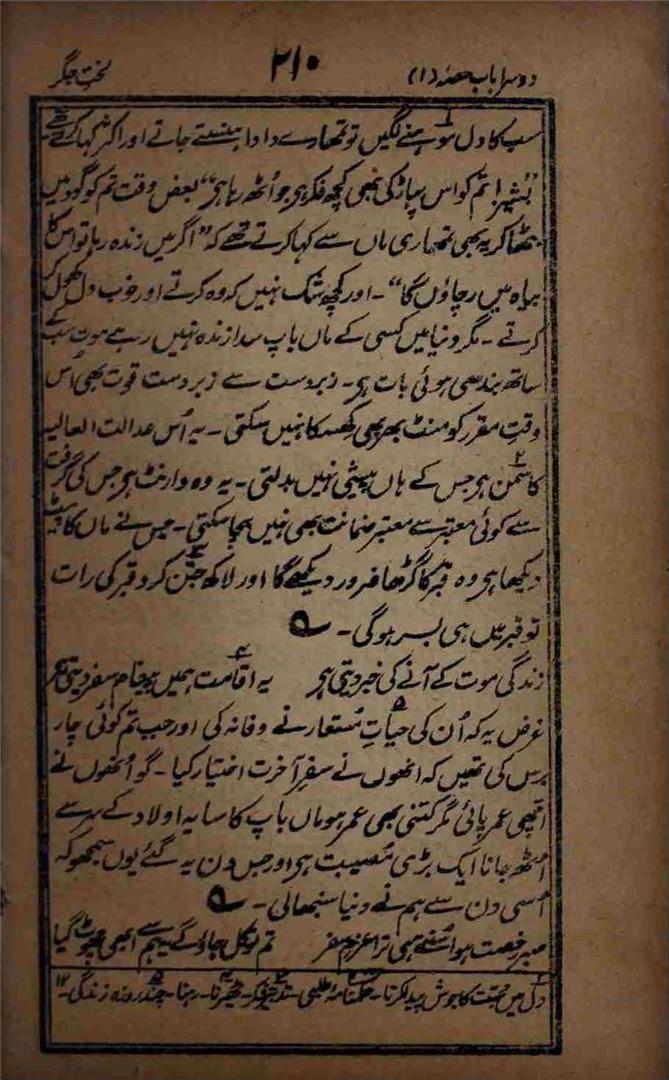 دوسرا باب حصہ (۱) ۲۱۰ لختِ جگر
سب کا دل موہنے لگیں تو تمھارے دادا ہنستے جاتے اور اکثر کہا کرتے تھے
"بشیر! تم کو اس پہاڑ کی بھی کچھ فکر ہی جو اُٹھ رہا ہی" بعض وقت تم کو گود میں
بٹھا کر یہ بھی تمھاری ماں سے کہا کرتے تھے کہ "اگر میں زندہ رہا تو اس کا
بیاہ میں رچاؤں گا"۔ اور کچھ شک نہیں کہ وہ کرتے اور خوب دل کھول کر
کرتے۔ مگر دنیا میں کسی کے ماں باپ سدا زندہ نہیں رہے موت سب کے
ساتھ بندھی ہوئی بات ہی۔ زبردست سے زبردست قوت بھی اُس
وقتِ مقرر کو منٹ بھر بھی کھسکا نہیں سکتی۔ یہ اُس عدالت العالیہ
کا سمن ہی جس کے ہاں پیشی نہیں بدلتی۔ یہ وہ وارنٹ ہی جس کی گرفت
سے کوئی معتبر سے معتبر ضمانت بھی نہیں بچا سکتی۔ جس نے ماں کا پیٹ
دیکھا ہی وہ قبر کا گڑھا ضرور دیکھے گا اور لاکھ جتن کرو قبر کی رات
تو قبر میں ہی بسر ہوگی۔ ؎
زندگی موت کے آنے کی خبر دیتی ہی یہ اقامت ہمیں پیغامِ سفر دیتی ہی
غرض یہ کہ اُن کی حیاتِ مستعار نے وفا نہ کی اور جب تم کوئی چار
برس کی تھیں کہ انھوں نے سفرِ آخرت اختیار کیا۔ گو اُنھوں نے
اچھی عمر پائی مگر کتنی بھی عمر ہو ماں باپ کا سایہ اولاد کے سر سے
اُٹھ جانا ایک بڑی مصیبت ہی اور جس دن یہ گئے یوں سمجھو کہ
اُسی دن سے ہم نے دنیا سنبھالی۔ ؎
صبر رخصت ہوا سُنتے ہی ترا عزمِ سفر تم تو کل جاؤ گے یہ ہم سے ابھی چھوٹ گیا
۱ دل میں محبت کا جوش پیدا کرنا۔ ۲ حکمنامۂ طلبی۔ ۳ تدبیر فکر۔ ۴ ٹھیرنا۔ رہنا۔ ۵ چند روزہ زندگی۔ ۱۲